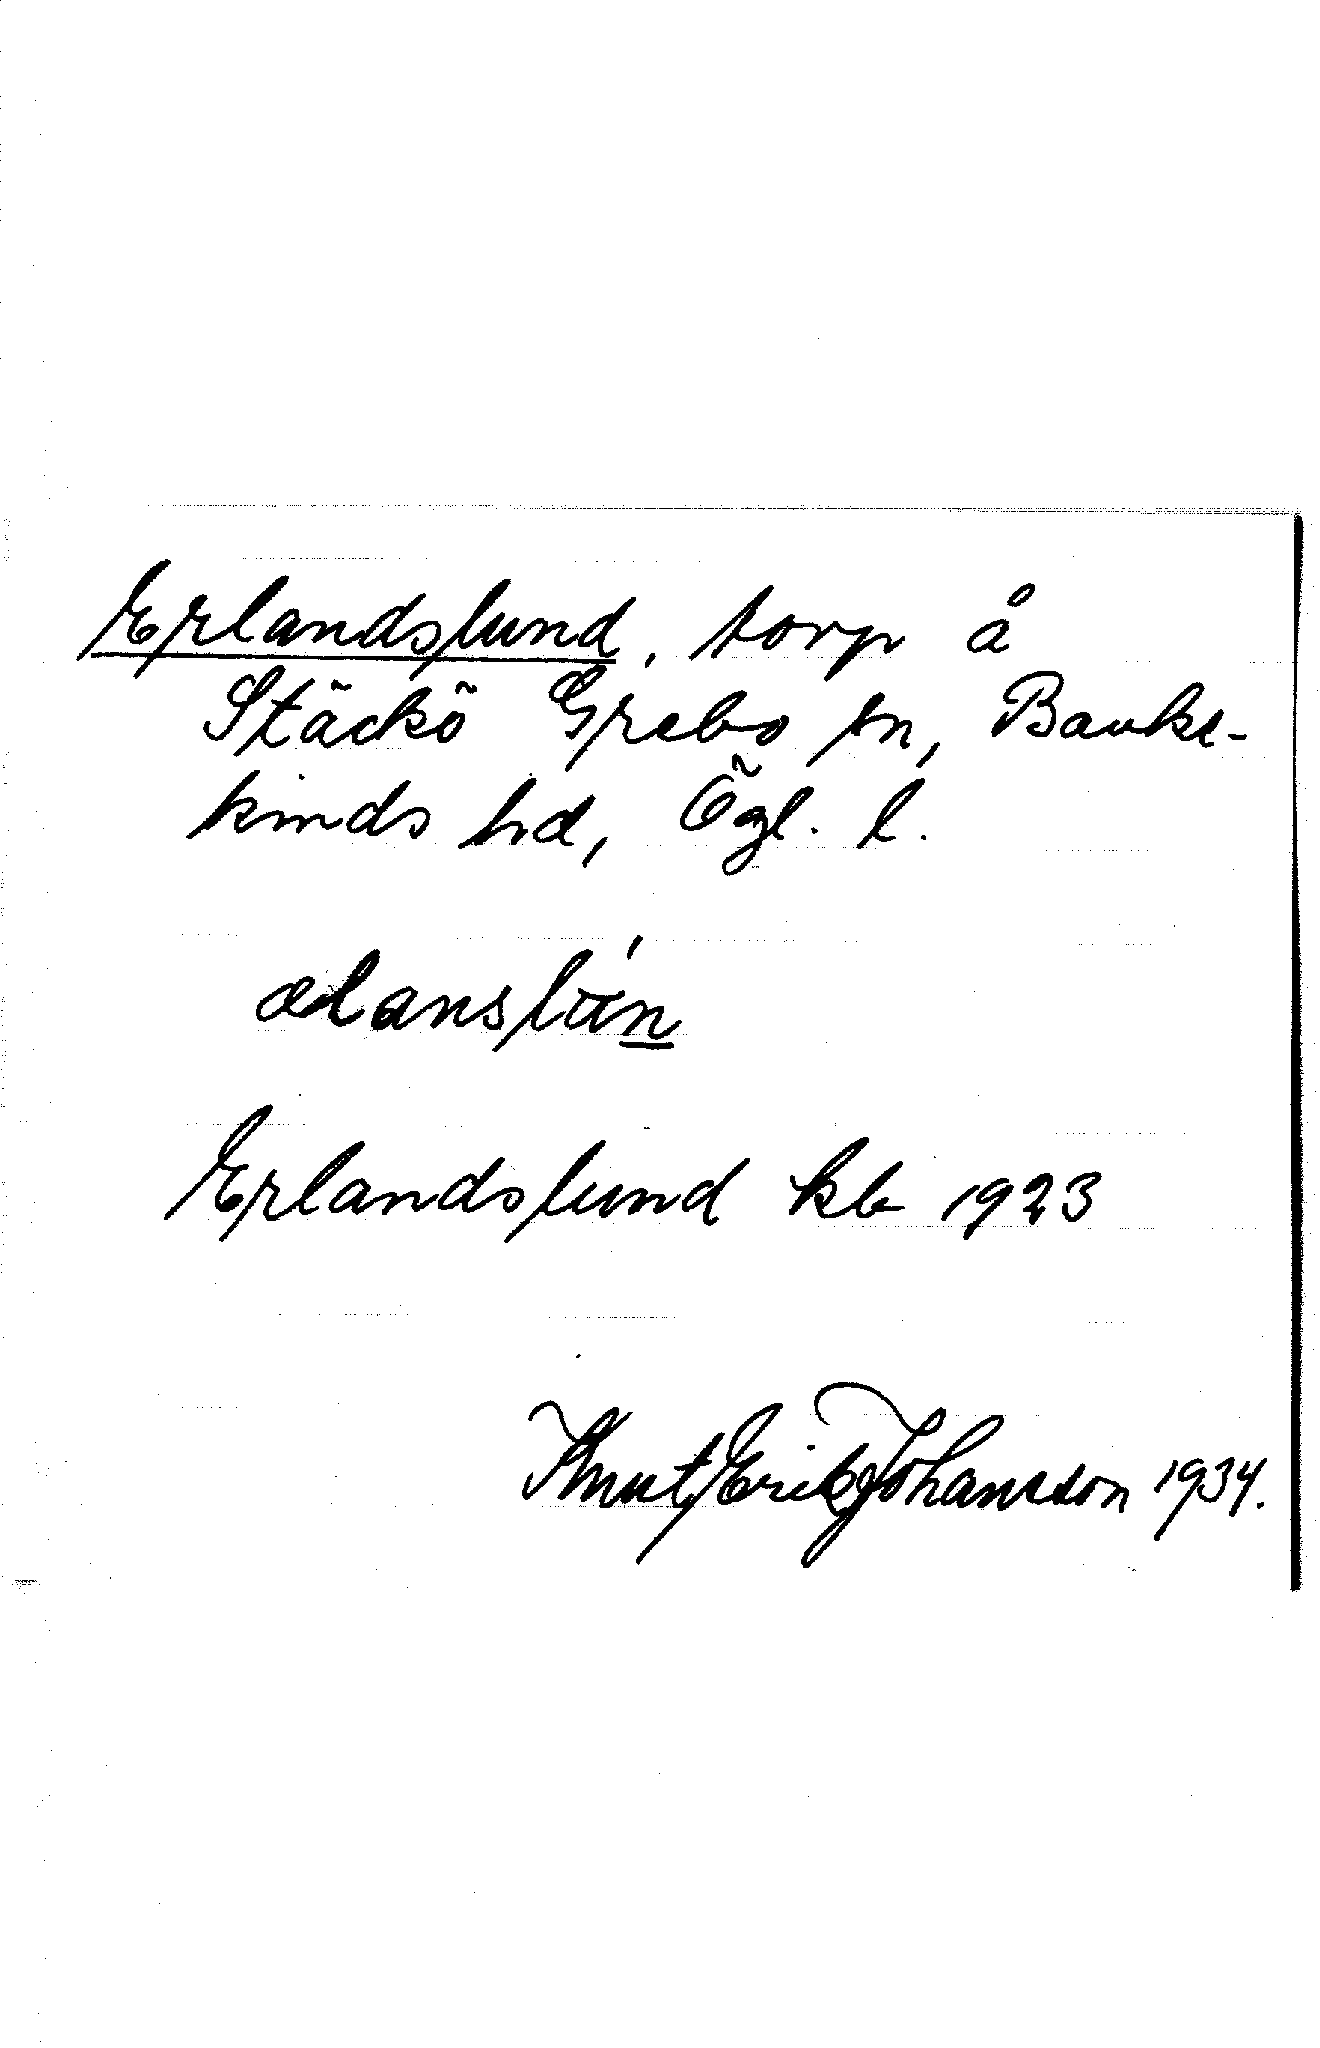 Erlandslund, torp å
Stäckö Grebo sn, Banke-
kinds hd, Ögl. l.
Erlandslund kb 1923
Knut Erik Johansson 1934.